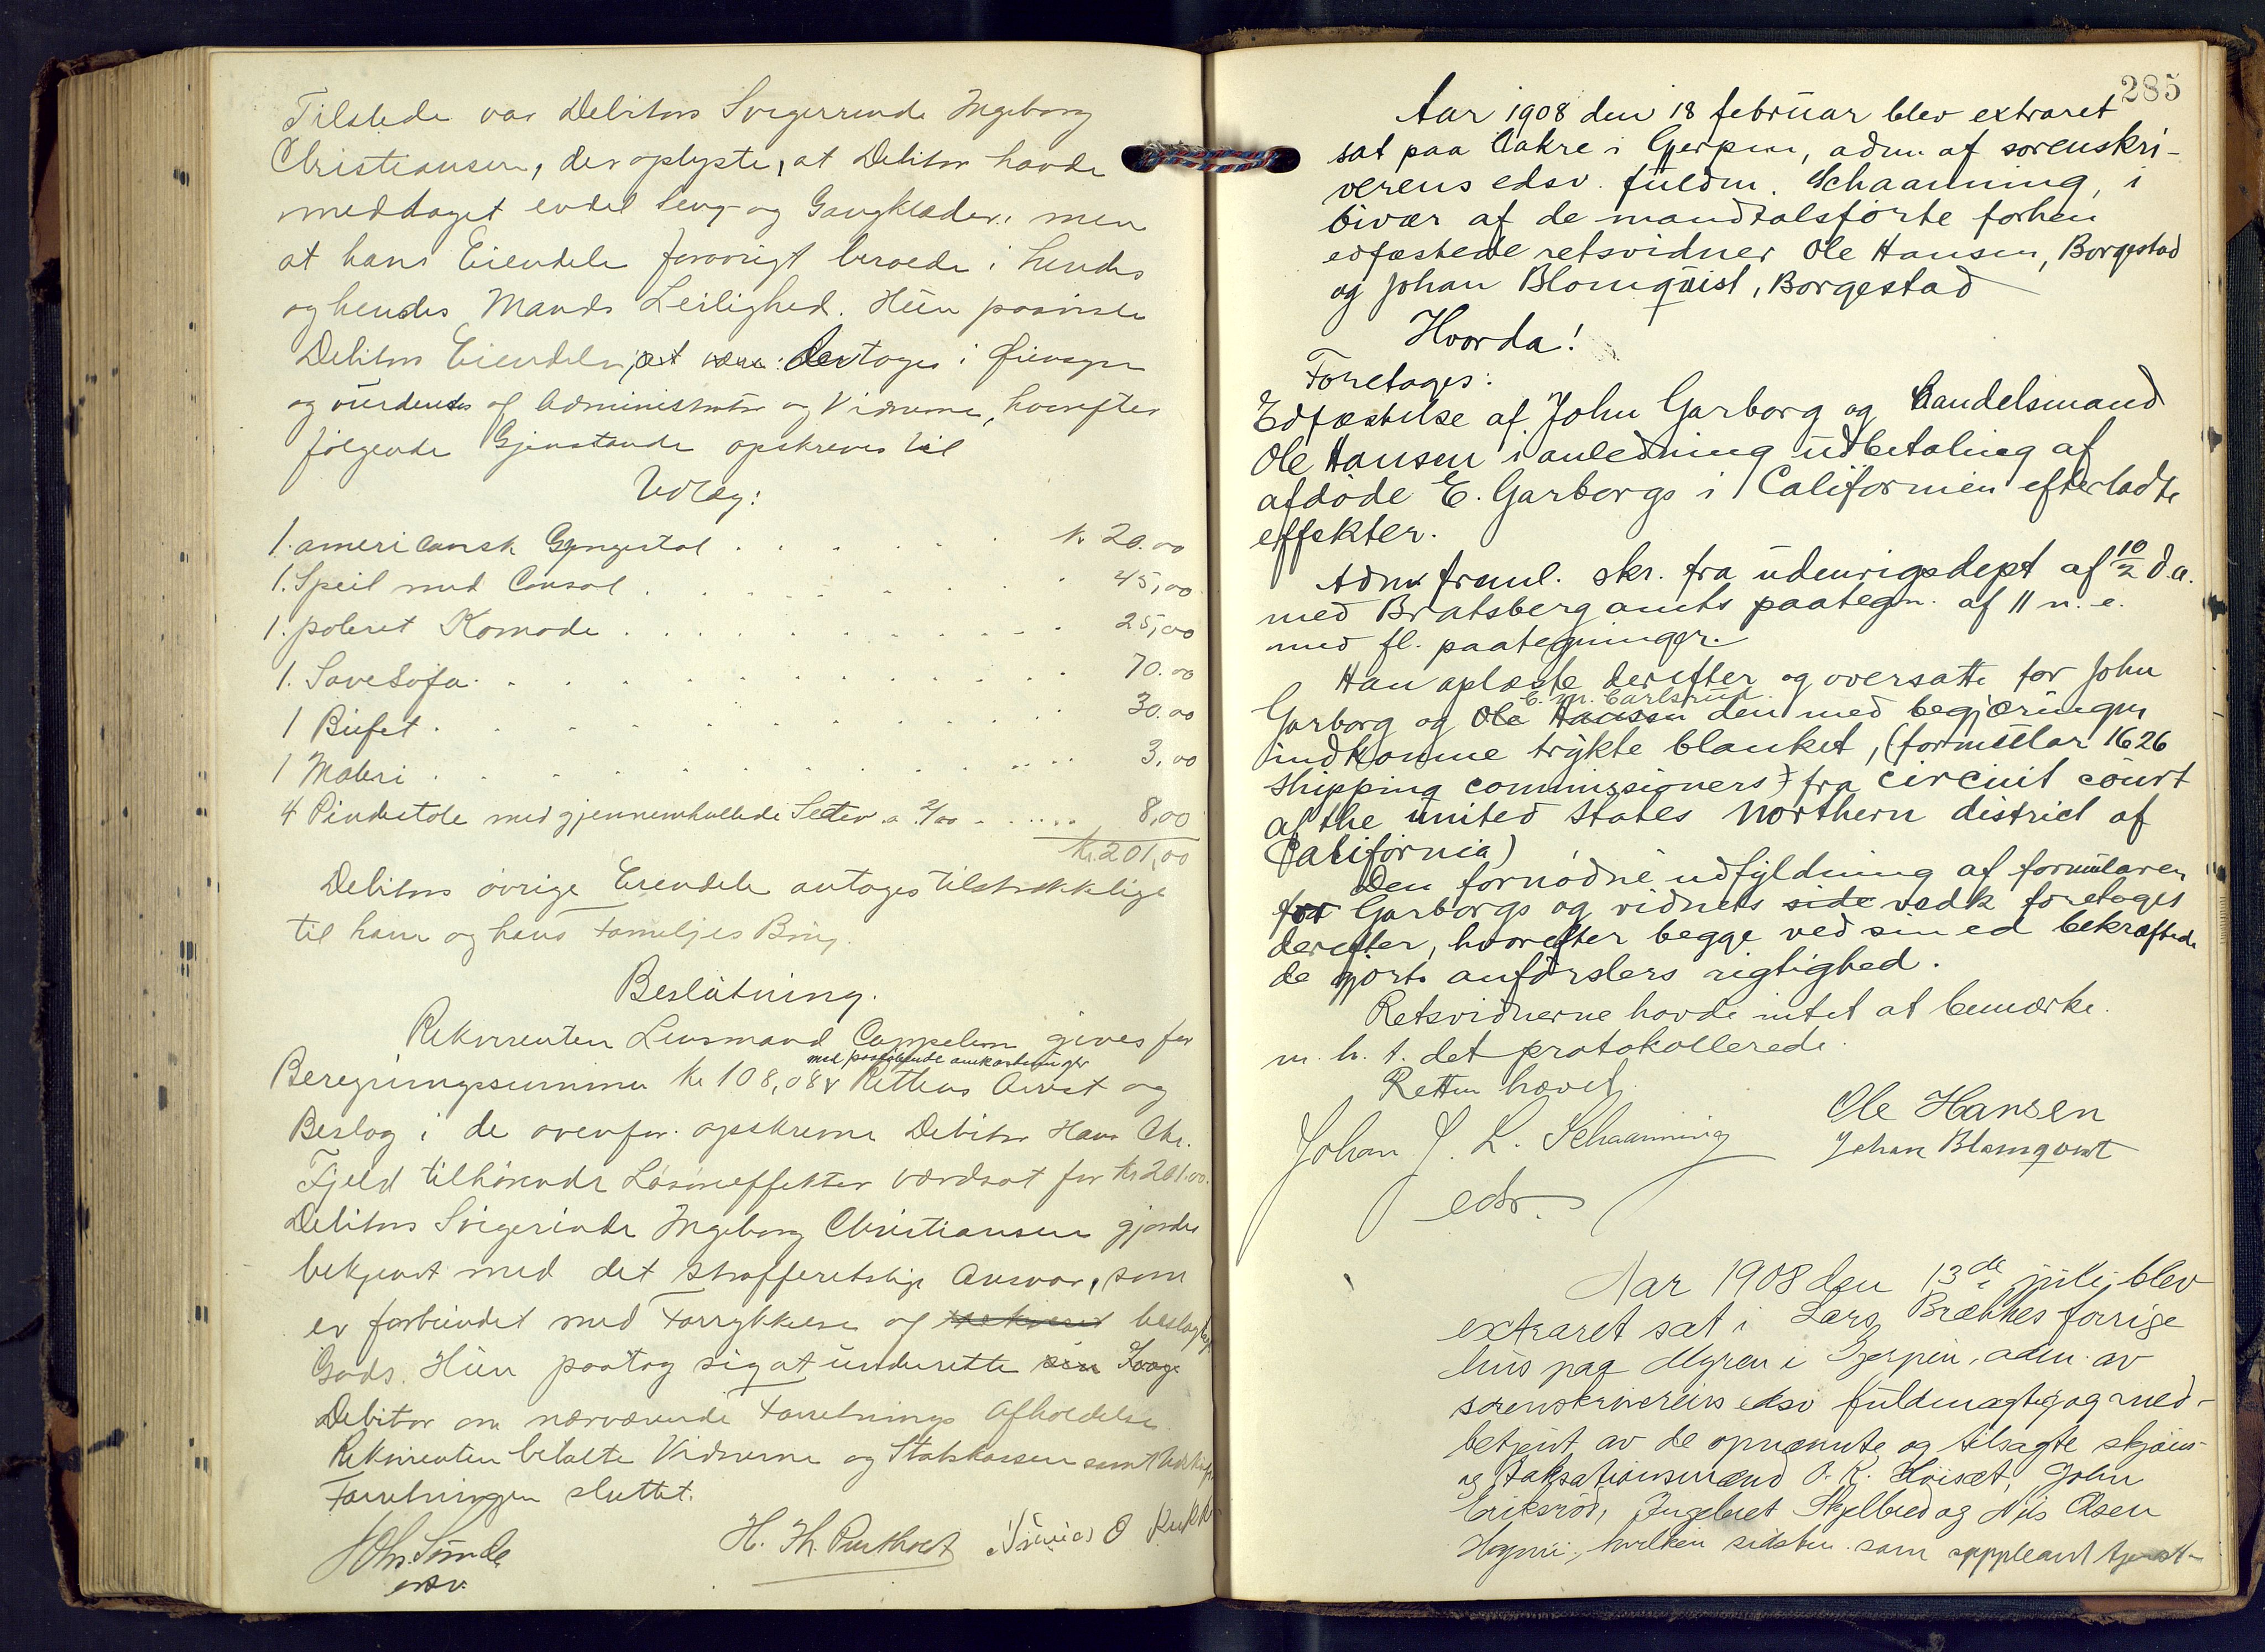 Tilstede var Debitors Svigerinde Ingeborg
Christiansen, der oplyste, at Debitor havde
meddaget endel Seng- og Gangklæder, men
at hans Eiendele forøvrigt beroede i hendes
og hendes Mands Leilighed. Hun paaviste
Debitors Eiendele, der toges i Øiensyn
og vurderedes af Administrator og Vidnerne, hvorefter
følgende Gjenstande opskreves til
Udlæg:
1. americansk Gyngestol . . . . . kr 20.00
1. Speil med Consol . . . . . . . 45,00
1. poleret Komode . . . . . . . . 25,00
1. SoveSofa . . . . . . . . . . 70.00
1 Bufet . . . . . . . . . . 30.00
1 Maleri . . . . . . . . . . 3,00
4 Pindestole med gjennemhullede Seter a 2/00 . . . . 8,00
kr. 201,00
Debitors øvrige Eiendele antages tilstrækkelige
til ham og hans Familjes Brug.
Beslutning.
Rekvirenten Lensmand Cappelen gives for
med paaløbende omkostninger
Beregningssummen kr 108,08 Rettens Arrest og
Beslag i de ovenfor opskrevne Debitor Hans Chr.
Fjeld tilhørende Løsøreeffekter værdsat for kr 201.00.
Debitors Svigerinde Ingeborg Christiansen gjordes
bekjendt med det strafferetslige Ansvar, som
er forbundet med Forrykkelse af beslaglagt
Gods. Hun paatog sig at underrette
Debitor om nærværende Forretnings Afholdelse.
Rekvirenten betalte Vidnerne og Statskassen samt
Forretningen sluttet.
edsv.
H. Th.
285
Aar 1908 den 18 februar blev extraret
sat paa Aakre i Gjerpen, adm. af sorenskri-
verens edsv. fuldm. Schaanning, i
bivær af de mandtalsførte forhen
edfæstede retsvidner Ole Hansen, Borgestad
og Johan Blomquist, Borgestad
Hvorda!
Foretages:
Edfæstelse af John Garborg og Handelsmand
Ole Hansen i anledning udbetaling af
afdøde E. Garborgs i Californien efterladte
effekter.
Adm freml. skr. fra udenrigsdept af 10/2 d.a.
med Bratsberg amts paategn. af 11 n. e.
med fl. paategninger.
Han oplæste derefter og oversatte for John
E. M. Carlsrud
Garborg og Ole Hansen den med begjæringen
indkomne trykte blanket, (formular 1626
Shipping commissioners) fra circuit court
of the united States Northern district of
California)
Den fornødne udfyldning af formularen
for Garborgs og vidnets side vedk foretoges
derefter, hvorefter begge ved sin ed bekræftede
de gjorte anførslers rigtighed.
Retsvidnerne havde intet at bemærke
m. h. t. det protokollerede.
Retten hævet
Johan J. L. Schaanning
edsv.
Ole Hansen
Johan Blomqvist
Aar 1908 den 13de juli blev
extraret sat i Lars Brækkes forrige
hus paa Myren i Gjerpen, adm. av
sorenskriverens edsv fuldmægtig og med-
betjent av de opnævnte og tilsagte skjøns-
og taksationsmænd O. K. Høiset, John
Eriksrød, Ingebret Skjelbred og Nils Olsen
hvilken sidste som suppleant